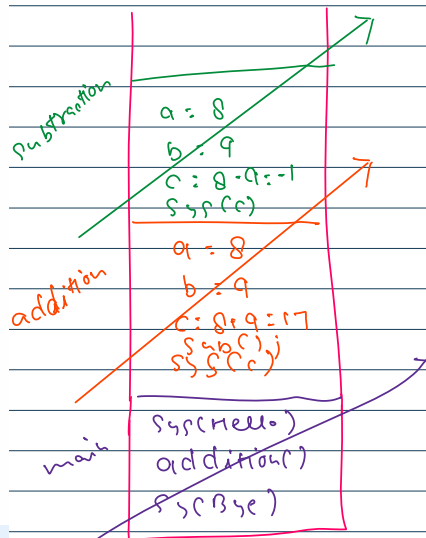 subtraction
a = 8
b = 9
c = 8-9 = -1
Sys(c)
addition
a = 8
b = 9
c = 8+9 = 17
Sub();
Sys(c)
main
Sys(Hello)
addition()
Sy(Bye)